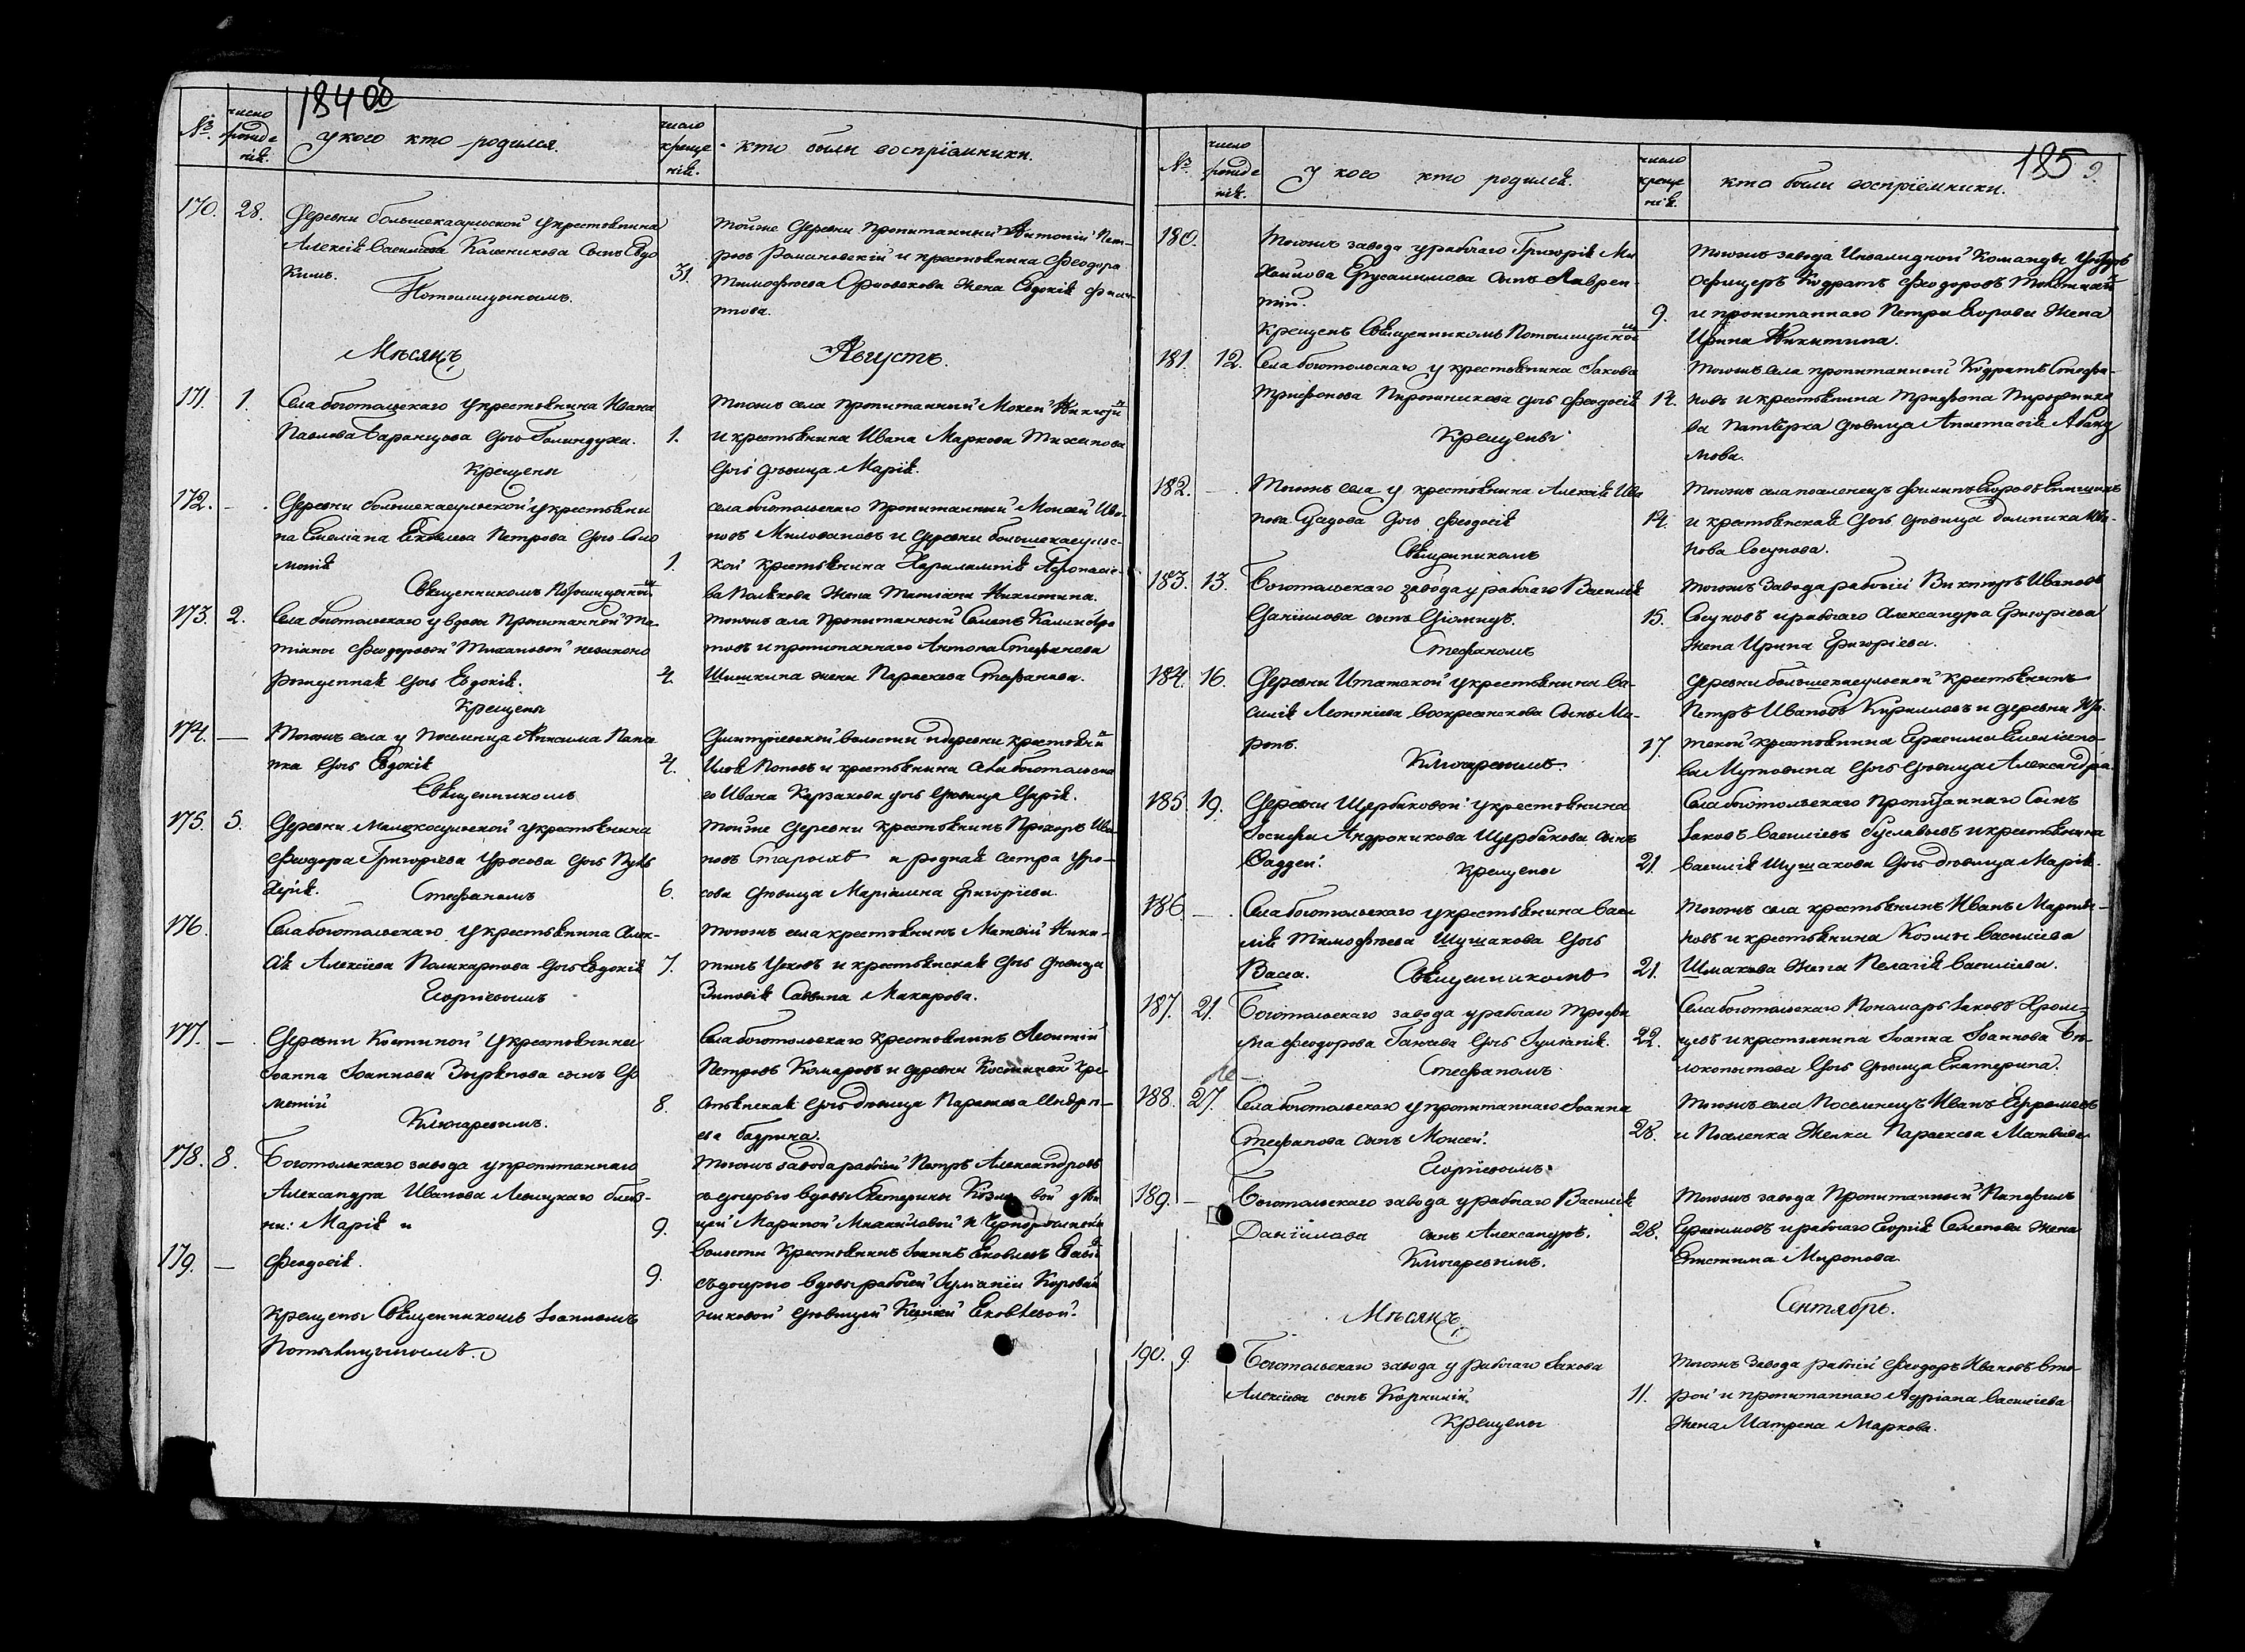 184 об
№. число рожденiя. У кого кто родился. число крещенiя. кто были воспрiемники.
170. 28. Деревни большекасульской у крестьянина
Алексѣя Васильева Каленикова Сынъ Евдо
кимъ.
Потылицынымъ.
31.
тойже Деревни пропитанный Антонiй Пет-
ровъ Романовскiй и крестьянина Феодора
Тимофѣева жена Евдокiя Филип-
пова.
Мѣсяцъ Августъ.
171. 1. Села боготольскаго у крестьянина Ивана
Павлова Баранцова дочь Голиндуха.
Крещены
1.
тогожъ села пропитанный Мокей
и крестьянина Ивана Маркова Тиханова
дочь дѣвица Марiя.
172. – Деревни большекасульской у крестьяни
на Емелiана Яковлева Петрова дочь Соло
монiя
Священникомъ Потылицынымъ
1.
села боготольскаго пропитанный Моисей Ива-
новъ Миловановъ и деревни большекасульс-
кой крестьянина Харалампiя Афонасье-
ва Полякова жена Татiана Никитина.
173. 2. Села боготольскаго у вдовы Пропитанной Та-
тiаны Феодоровой Тихановой незаконо
рожденная дочь Евдокiя.
Крещены
4.
тогожъ села Пропитанный Семенъ
и пропитаннаго Антона Стефанова
Шишкина жена Параскева Стефанова.
174. – Тогожъ села у Поселенца Анисима
дочь Евдокiя
Священникомъ
4.
Дмитрiевской волости деревни крестьянинъ
Илья Поповъ и крестьянина Села боготольска
го Ивана Карзакова дочь дѣвица Дарiя.
175. 5. Деревни Малокосульской у крестьянина
Феодора Григорiева Уросова дочь Пуль
херiя. Стефаномъ
6.
тойже Деревни крестьянинъ Прохоръ Ива
новъ и родная сестра Уро-
сова дѣвица Марiамна Григорiева.
176. Села боготольскаго у крестьянина Алек-
сѣя Алексѣева Поликарпова дочь Евдокiя
Георгiевымъ
7.
тогожъ села крестьянинъ Матвѣй Ники-
тинъ и крестьянская дочь дѣвица
Зиновiя Савина Макарова.
177. – Деревни Коптиной у крестьянина
Iоанна Iоаннова Зырянова сынъ До
метiй
Ключаревымъ.
8.
Села боготольскаго крестьянинъ Леонтiй
Петровъ Комаровъ и деревни Коптиной кре-
стьянская дочь дѣвица Параскева Андре-
ева Бадрина.
178. 8. Боготольскаго завода у пропитаннаго
Александра Иванова Левицкаго близ-
ни: Марiя и
9.
Тогожъ завода рабочiй Петръ Александровъ
съ дочерью вдовы Екатерины Козло вой дѣви
цей Мариной Михайловой и Чернорѣченской
179. – Феодосiя.
9.
волости крестьянинъ Iоаннъ Яковлевъ
съ дочерью вдовы рабочей Iулианiи Коровай
никовой дѣвицей Ксенiей Яковлевой.
Крещены Священникомъ Iоанномъ
Потылицынымъ.
185
№. число рожденiя. У кого кто родился. число крещенiя. кто были воспрiемники.
180. Тогожъ завода у рабочаго Григорiя Ми
хайлова Ерусалимова сынъ Лаврен-
тiй.
Крещенъ Священникомъ Потылицынымъ
9.
тогожъ завода Инвалидной Команды Унтеръ
Офицеръ Кодратъ Феодоровъ
и пропитаннаго Петра Егорова жена
Ирина Никитина.
181. 12. Села боготольскаго у крестьянина Iакова
Трифонова Пирожникова дочь Феодосiя
Крещены
14.
Тогожъ села пропитанный Кодратъ Стефа-
новъ и крестьянина Трифона Пирожнико
ва падчерка дѣвица Анастасiя Авакумова.
182. – Тогожъ села у крестьянина Алексѣя Ива
нова Сѣдова дочь Феодосiя
Священникомъ
14.
Тогожъ села поселенецъ Филипъ Егоровъ
и крестьянская дочь дѣвица Домника Ива-
нова Сосунова.
183. 13. Боготольскаго завода у рабочаго Василiя
Данiилова сынъ Дiомидъ.
Стефаномъ
15.
тогожъ завода рабочiй Викторъ Ивановъ
Сосуновъ и рабочаго Александра Григорiева
жена Ирина Григорiева.
184. 16. Деревни Итатской у крестьянина Ва-
силiя Леонтiева Воскресенскова сынъ Ми-
ронъ.
Ключаревымъ.
17.
Деревни большекасульской крестьянинъ
Петръ Ивановъ Кирилловъ и деревни Ита-
тской крестьянина Герасима
Мутовина дочь дѣвица Александра.
185. 19. Деревни Щербаковой у крестьянина
Iосифа Андроникова Щербакова сынъ
Фаддей. Крещены
21.
Села боготольскаго пропитаннаго сынъ
Iаковъ Василiевъ Гуслявцевъ и крестьянина
Василiя Шушакова дочь дѣвица Марiя.
186. – Села боготольскаго у крестьянина Васи
лiя Тимофѣева Шушакова дочь
Васса. Священникомъ
21.
тогожъ села крестьянинъ Иванъ Мартыновъ и крестьянина Козмы Василiева
Шмакова жена Пелагiя Василiева.
187. 21. Боготольскаго завода у рабочаго Трофи
ма Феодорова дочь Iулианiя.
Стефаномъ
22.
Села боготольскаго Пономарь Iаковъ Хром-
цевъ и крестьянина Iоанна Iоаннова Бѣ-
локопытова дочь дѣвица Екатерина.
188. 27. Села боготольскаго у пропитаннаго Iоанна
Стефанова сынъ Моисей.
Георгiевымъ.
28.
тогожъ села Поселенецъ Иванъ Ефремовъ
и Поселенка женка Параскева Матвѣева
189. – Боготольскаго завода у рабочаго Василiя
Данiилова сынъ Александръ.
Ключаревымъ.
28.
тогожъ завода Пропитанный Панфилъ
Герасимовъ и рабочаго Георгiя Семенова жена
Епистима Миронова.
Мѣсяцъ Сентябрь.
190. 9. Боготольскаго завода у рабочаго Iакова
Алексѣева сынъ Корнилiй.
Крещены
11.
тогожъ Завода рабочiй Феодоръ Ивановъ Вто-
рой и пропитаннаго Адрiана Василiева
жена Матрена Маркова.